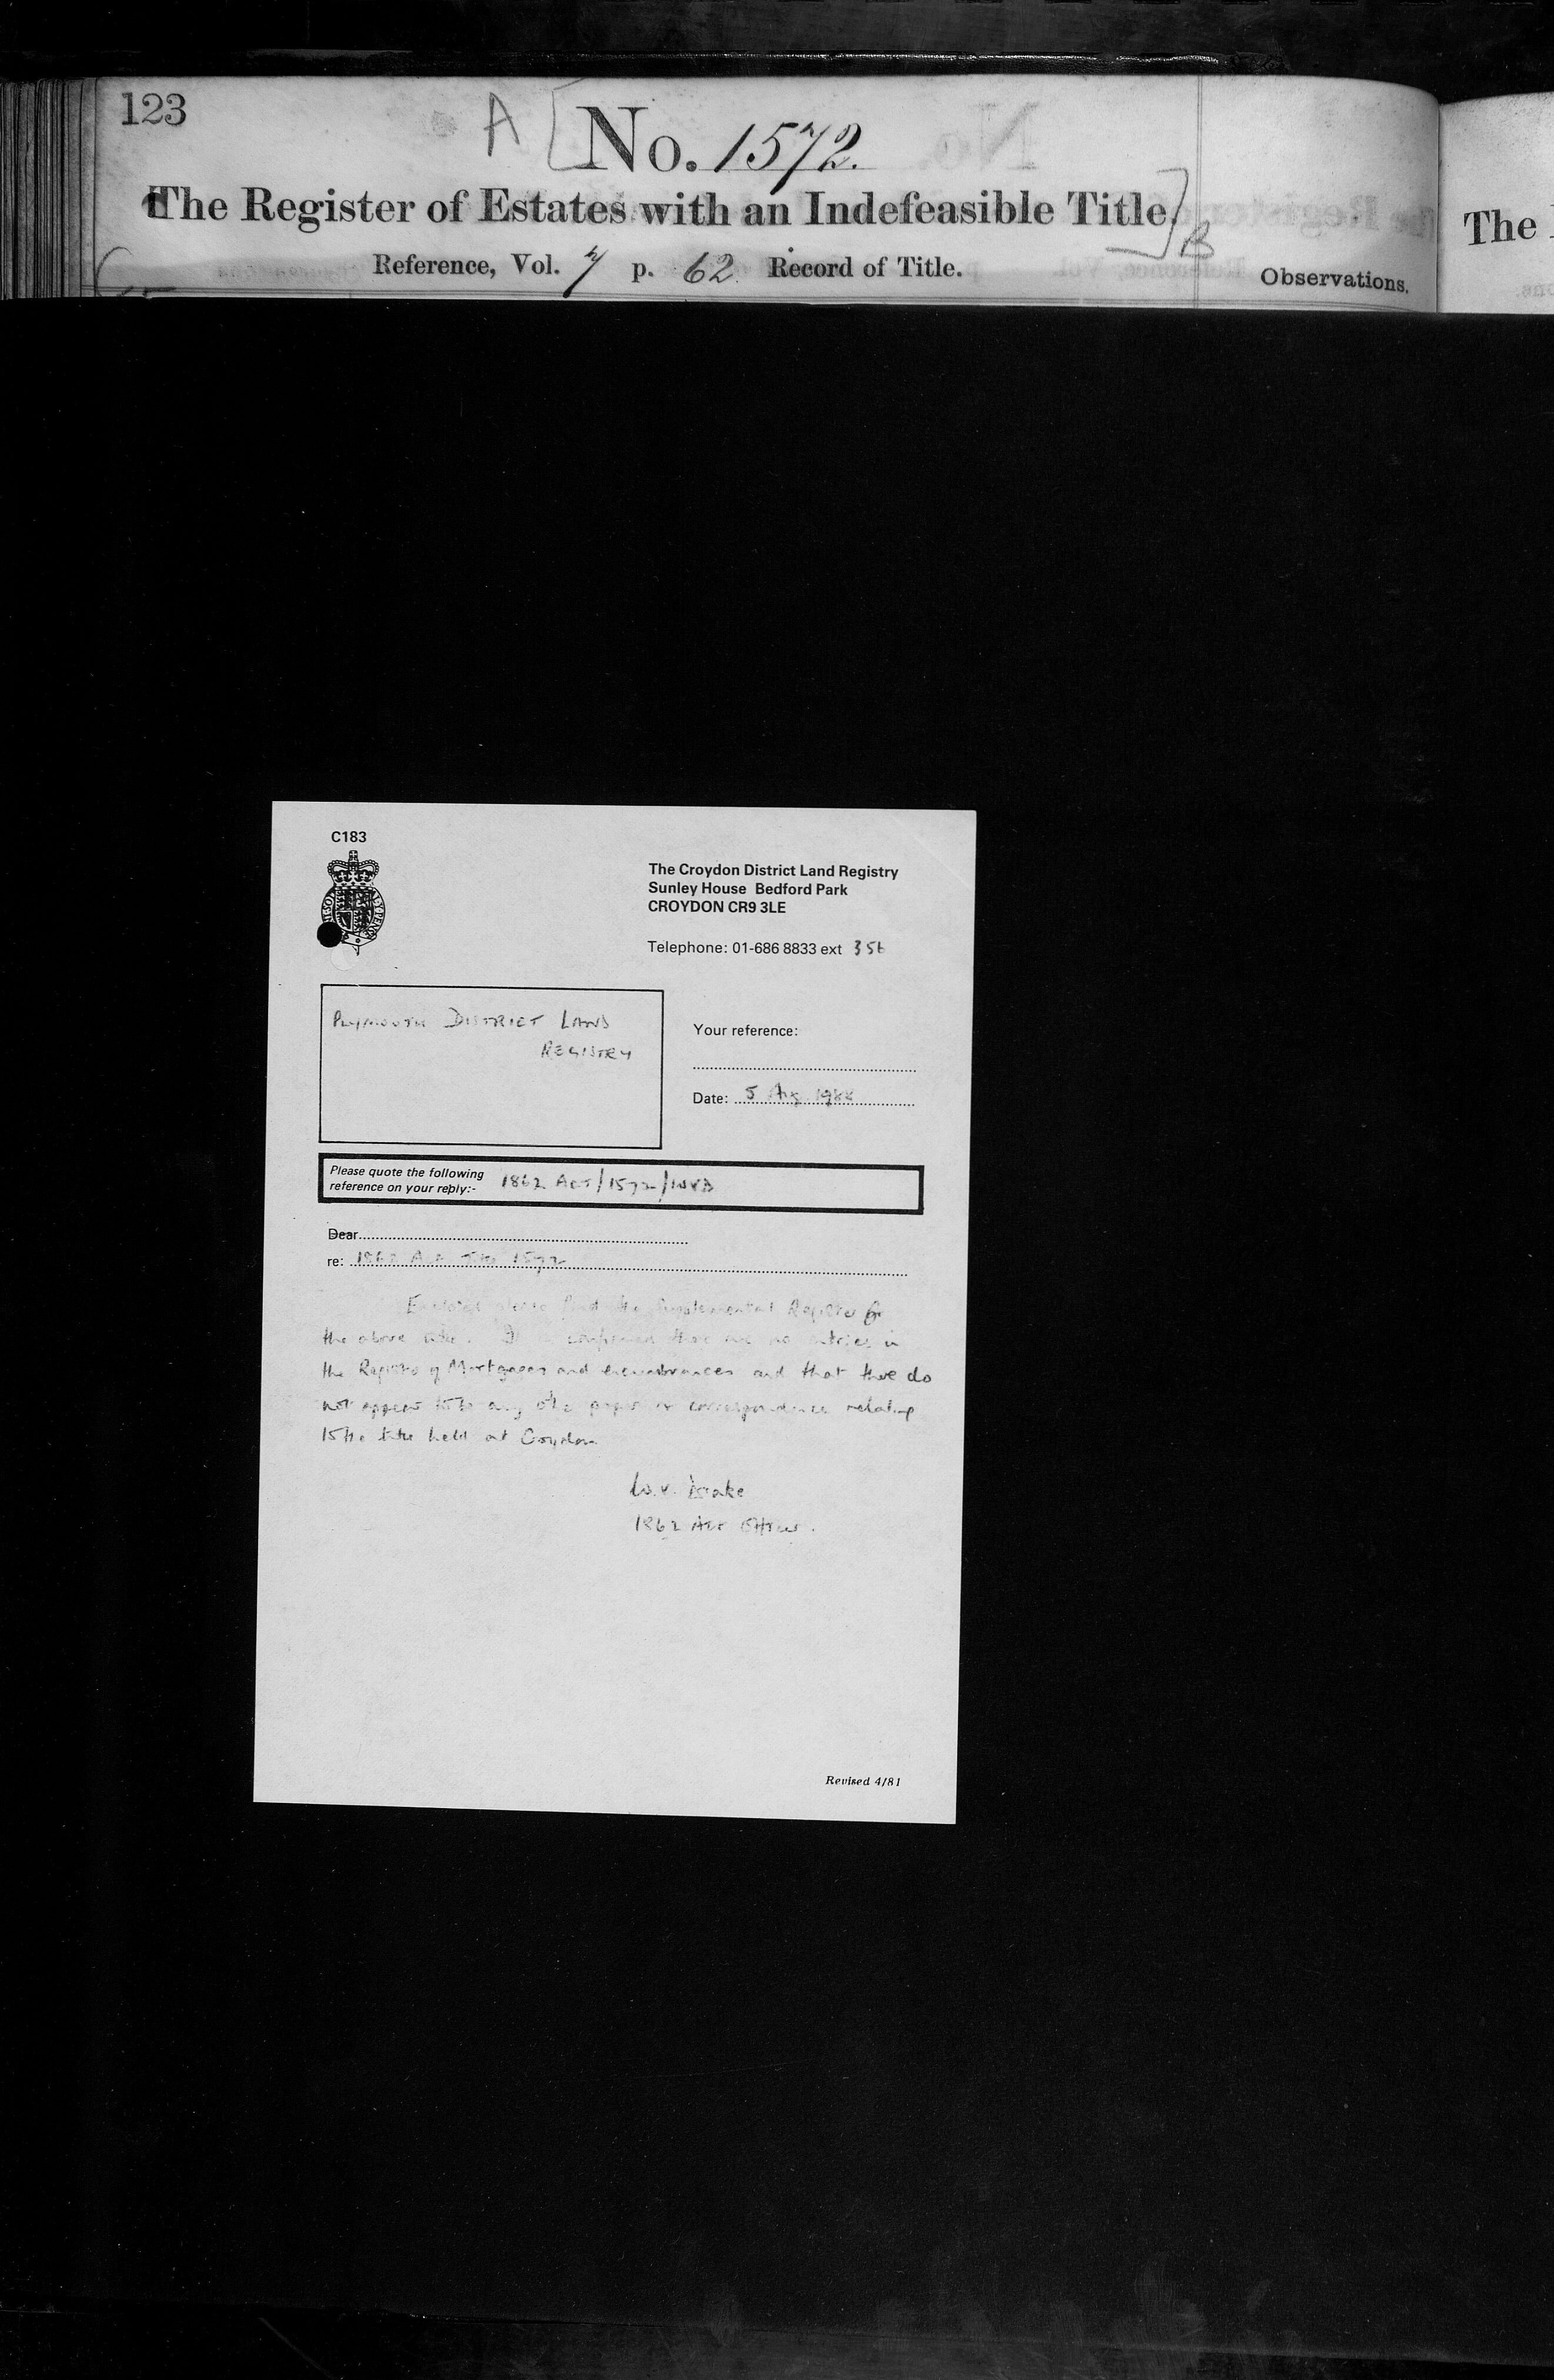 123
A [No. 1572.
The Register of Estates with an Indefeasible Title.] B
Reference, Vol. 7 p. 62 Record of Title.
Observations.
The
C183
The Croydon District Land Registry
Sunley House Bedford Park
CROYDON CR9 3LE
Telephone: 01-686 8833 ext 356
PLYMOUTH DISTRICT LAND
REGISTRY
Your reference:
Date: 5 Aug 1988
Please quote the following
reference on your reply:- 1862 ACT/1572/WVD
Dear
re: 1862 Act Title 1572
Enclosed please find the Supplemental Register for
the above title. It is confirmed there are no entries in
the Register of Mortgages and encumbrances and that there do
not appear to be any other papers or correspondence relating
to the title held at Croydon.
W.V. Drake
1862 Act Officer.
Revised 4/81